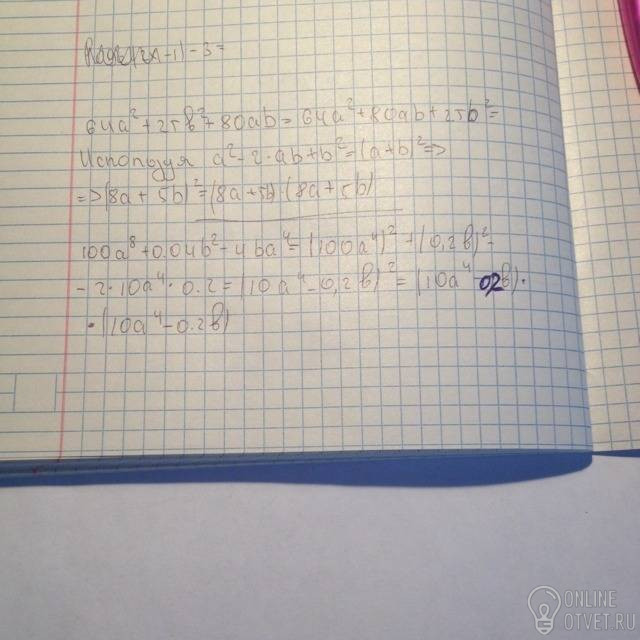 64a² + 25b² + 80ab = 64a² + 80ab + 25b² =
Используя a² - 2·ab + b² = (a+b)² =>
=> (8a + 5b)² = (8a + 5b) (8a + 5b)
100a⁸ + 0.04b² - 4ba⁴ = (100a⁴)² + (0,2b)² -
- 2·10a⁴·0.2 = (10a⁴ - 0,2b)² = (10a⁴ 0,2b)·
·(10a⁴ - 0.2b)
ONLINE
OTVET.RU